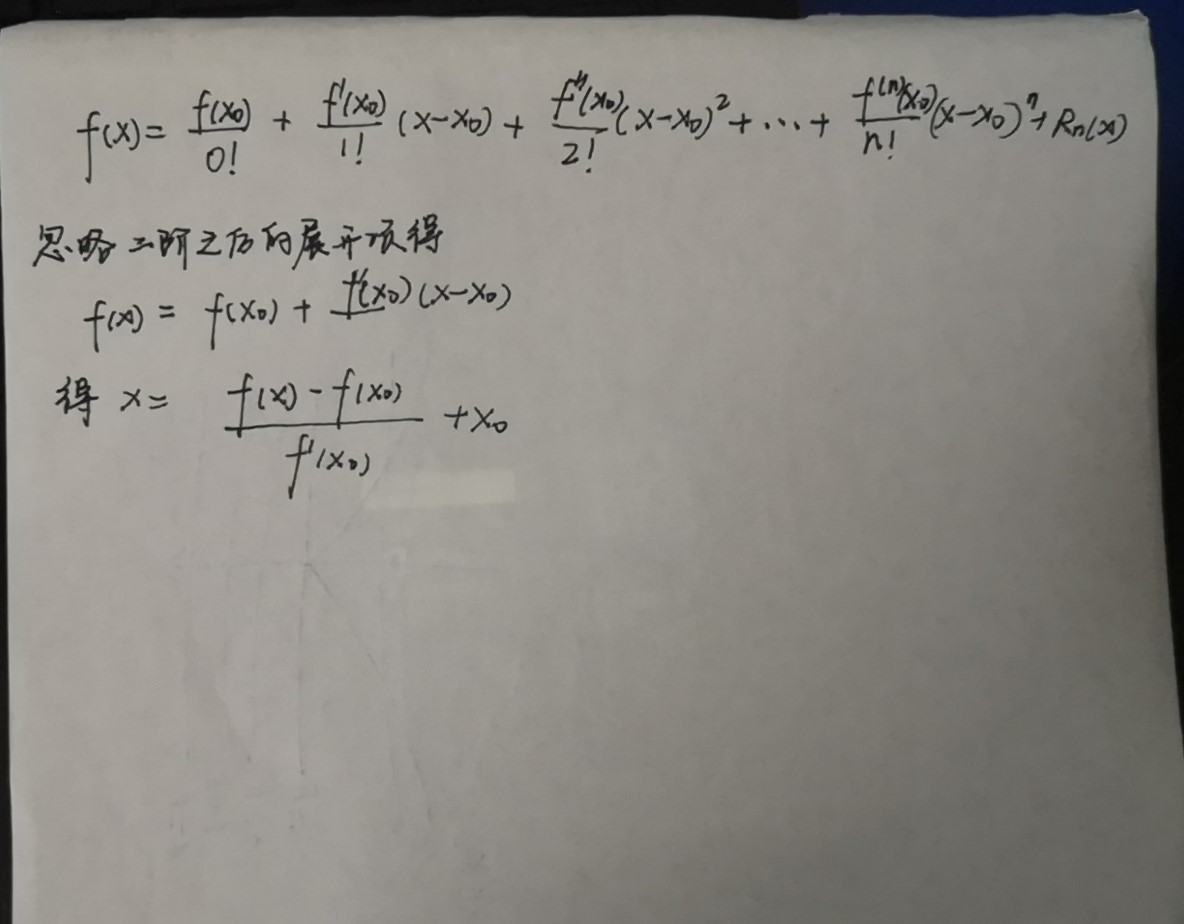 f(x) = f(x₀)/0! + f'(x₀)/1! (x-x₀) + f''(x₀)/2! (x-x₀)² + ... + f⁽ⁿ⁾(x₀)/n! (x-x₀)ⁿ + Rₙ(x)
忽略二阶之后的展开项得
f(x) = f(x₀) + f'(x₀)(x-x₀)
得 x = (f(x) - f(x₀))/f'(x₀) + x₀